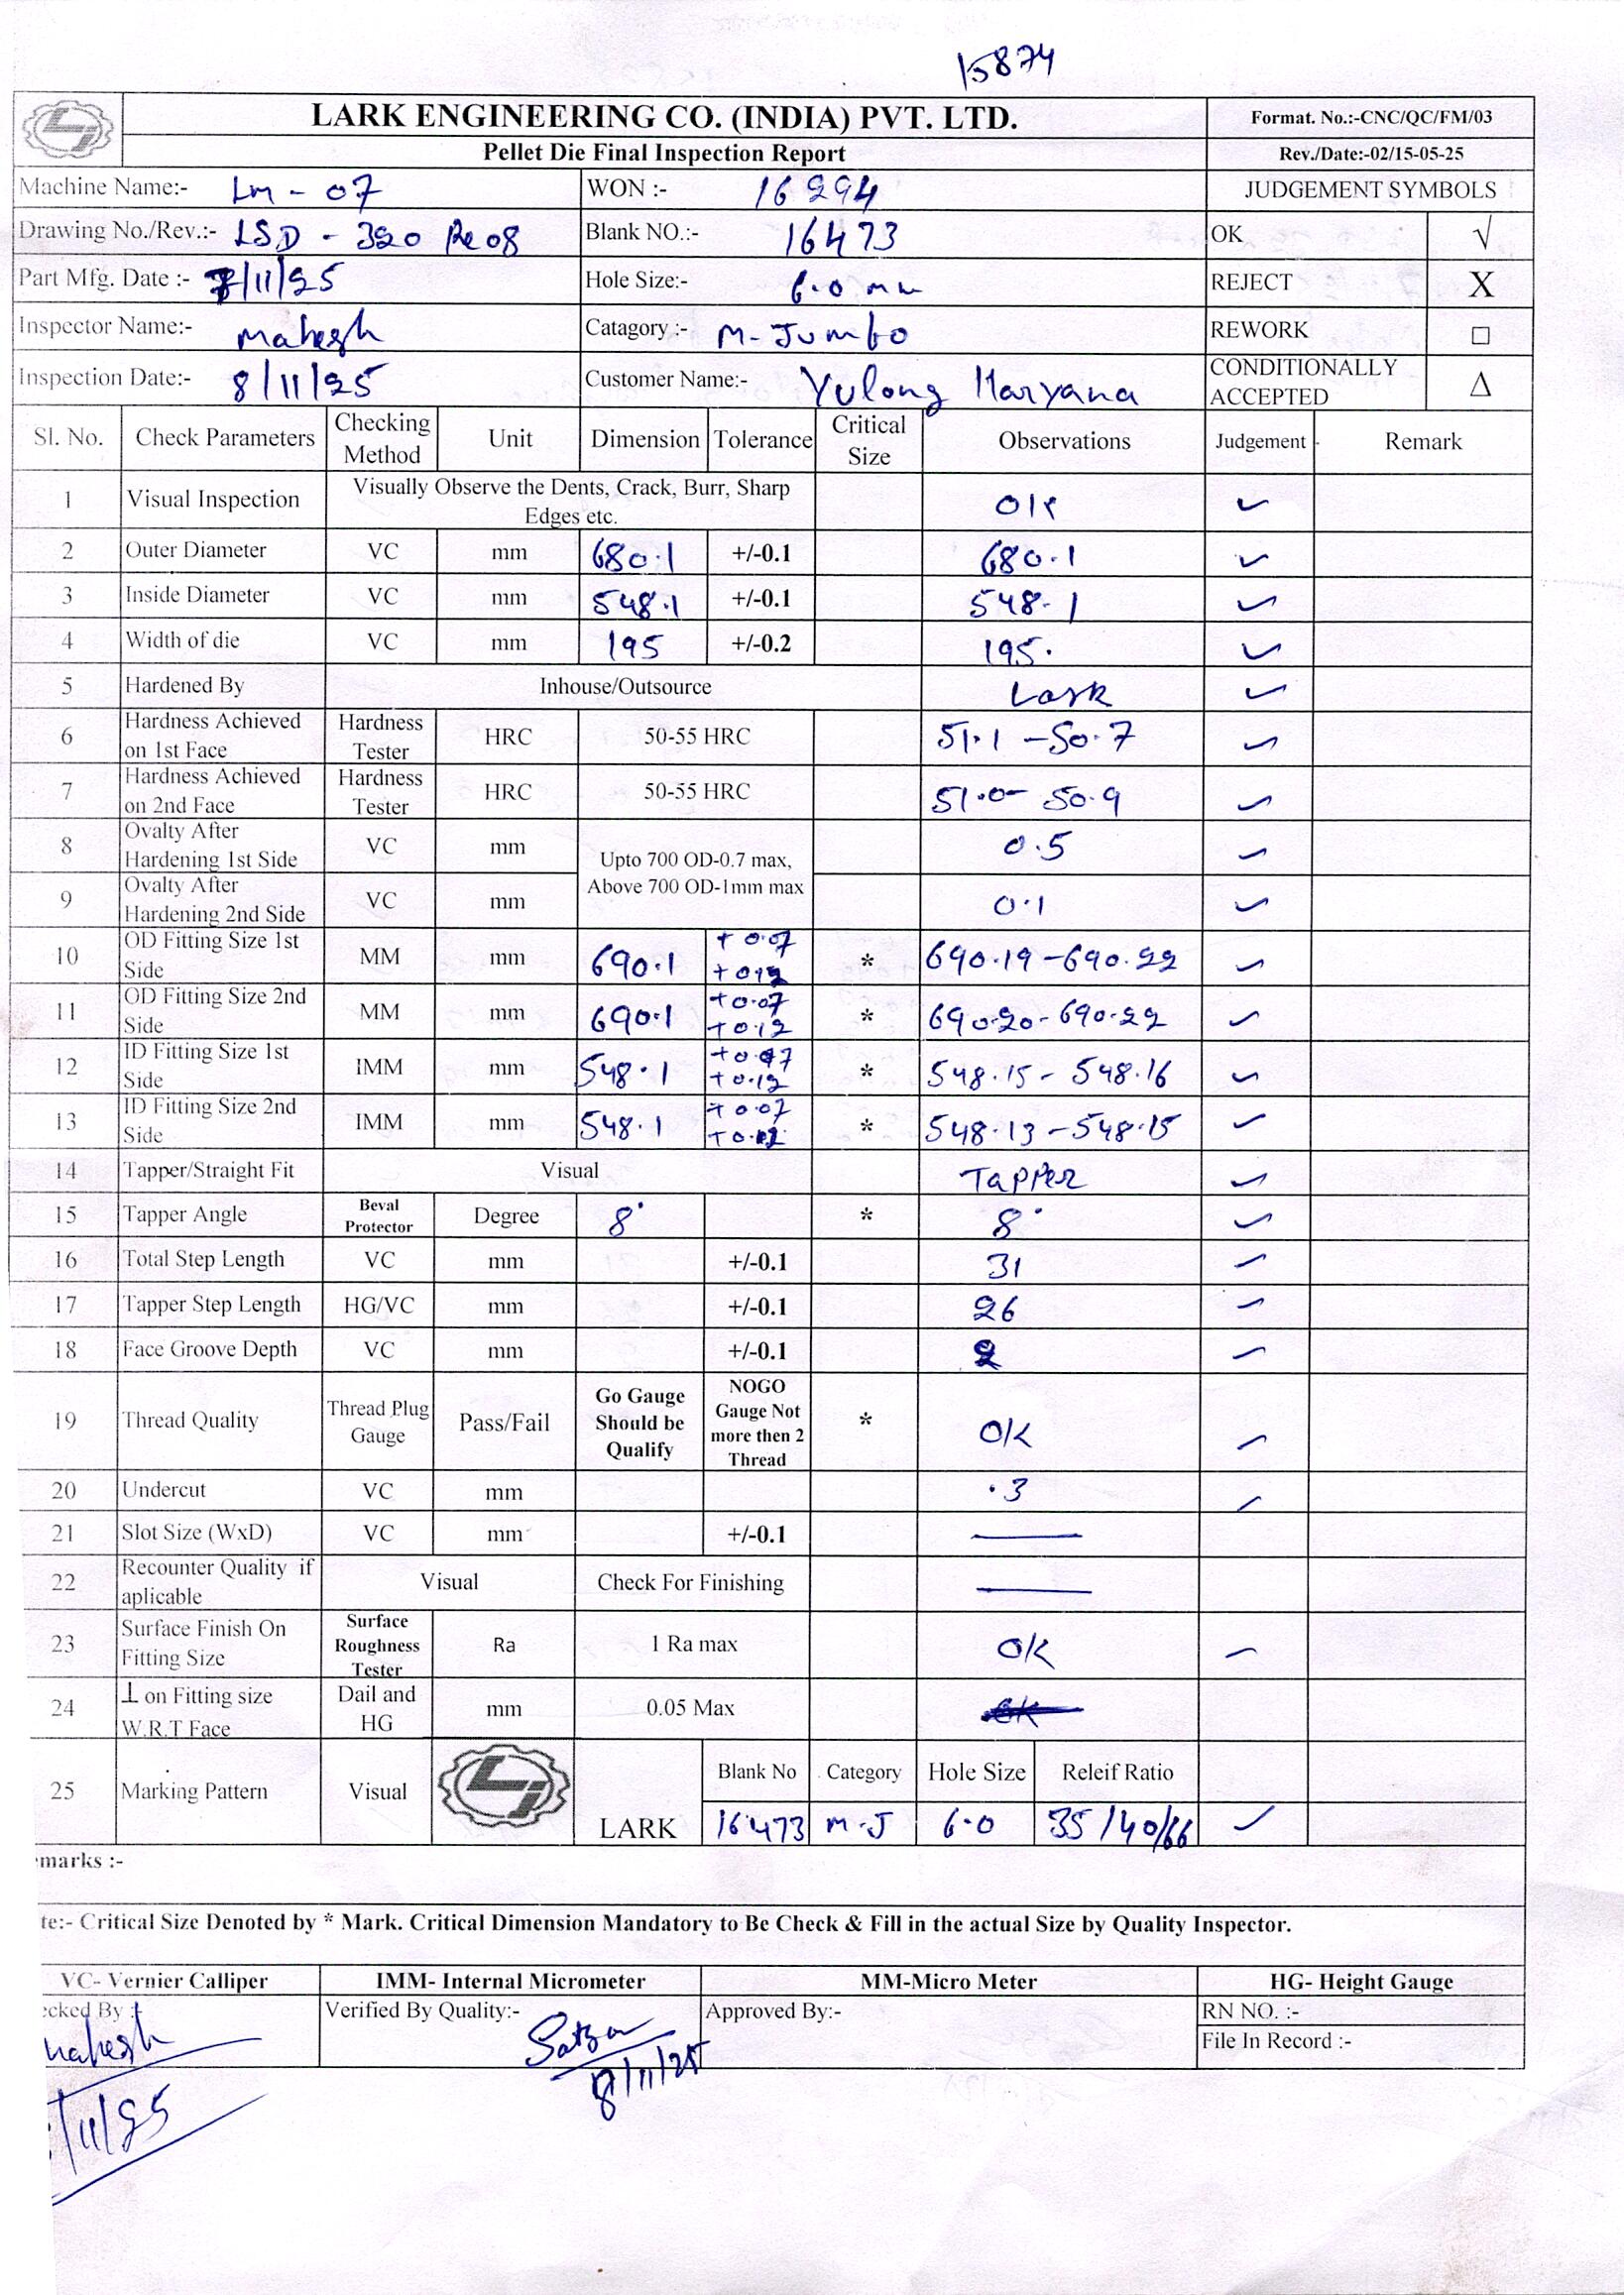 15874
LARK ENGINEERING CO. (INDIA) PVT. LTD. Format. No.:-CNC/QC/FM/03
Pellet Die Final Inspection Report Rev./Date:-02/15-05-25
Machine Name:- Lm - 07 WON :- 16294 JUDGEMENT SYMBOLS
Drawing No./Rev.:- LSD - 320 Re 08 Blank NO.:- 16473 OK √
Part Mfg. Date :- 7/11/25 Hole Size:- 6.0 mm REJECT X
Inspector Name:- Mahesh Catagory :- M-Jumbo REWORK □
Inspection Date:- 8/11/25 Customer Name:- Yulong Haryana CONDITIONALLY ACCEPTED Δ
Sl. No. Check Parameters Checking Method Unit Dimension Tolerance Critical Size Observations Judgement - Remark
1 Visual Inspection Visually Observe the Dents, Crack, Burr, Sharp Edges etc. OK ✓
2 Outer Diameter VC mm 680.1 +/-0.1 680.1 ✓
3 Inside Diameter VC mm 548.1 +/-0.1 548.1 ✓
4 Width of die VC mm 195 +/-0.2 195. ✓
5 Hardened By Inhouse/Outsource Lark ✓
6 Hardness Achieved on 1st Face Hardness Tester HRC 50-55 HRC 51.1 - 50.7 ✓
7 Hardness Achieved on 2nd Face Hardness Tester HRC 50-55 HRC 51.0 - 50.9 ✓
8 Ovalty After Hardening 1st Side VC mm Upto 700 OD-0.7 max, Above 700 OD-1mm max 0.5 ✓
9 Ovalty After Hardening 2nd Side VC mm 0.1 ✓
10 OD Fitting Size 1st Side MM mm 690.1 +0.07 +0.12 * 690.19 - 690.22 ✓
11 OD Fitting Size 2nd Side MM mm 690.1 +0.07 +0.12 * 690.20 - 690.22 ✓
12 ID Fitting Size 1st Side IMM mm 548.1 +0.07 +0.12 * 548.15 - 548.16 ✓
13 ID Fitting Size 2nd Side IMM mm 548.1 +0.07 +0.12 * 548.13 - 548.15 ✓
14 Tapper/Straight Fit Visual Tapper ✓
15 Tapper Angle Beval Protector Degree 8° * 8° ✓
16 Total Step Length VC mm +/-0.1 31 ✓
17 Tapper Step Length HG/VC mm +/-0.1 26 ✓
18 Face Groove Depth VC mm +/-0.1 2 ✓
19 Thread Quality Thread Plug Gauge Pass/Fail Go Gauge Should be Qualify NOGO Gauge Not more then 2 Thread * OK ✓
20 Undercut VC mm .3 ✓
21 Slot Size (WxD) VC mm +/-0.1 —
22 Recounter Quality if aplicable Visual Check For Finishing —
23 Surface Finish On Fitting Size Surface Roughness Tester Ra 1 Ra max OK ✓
24 ⊥ on Fitting size W.R.T Face Dail and HG mm 0.05 Max
25 Marking Pattern Visual LARK Blank No Category Hole Size Releif Ratio
16473 M-J 6.0 35/40/66 ✓
marks :-
te:- Critical Size Denoted by * Mark. Critical Dimension Mandatory to Be Check & Fill in the actual Size by Quality Inspector.
VC- Vernier Calliper IMM- Internal Micrometer MM-Micro Meter HG- Height Gauge
ecked By :- Verified By Quality:- Approved By:- RN NO. :-
File In Record :-
Mahesh
8/11/25
/11/25